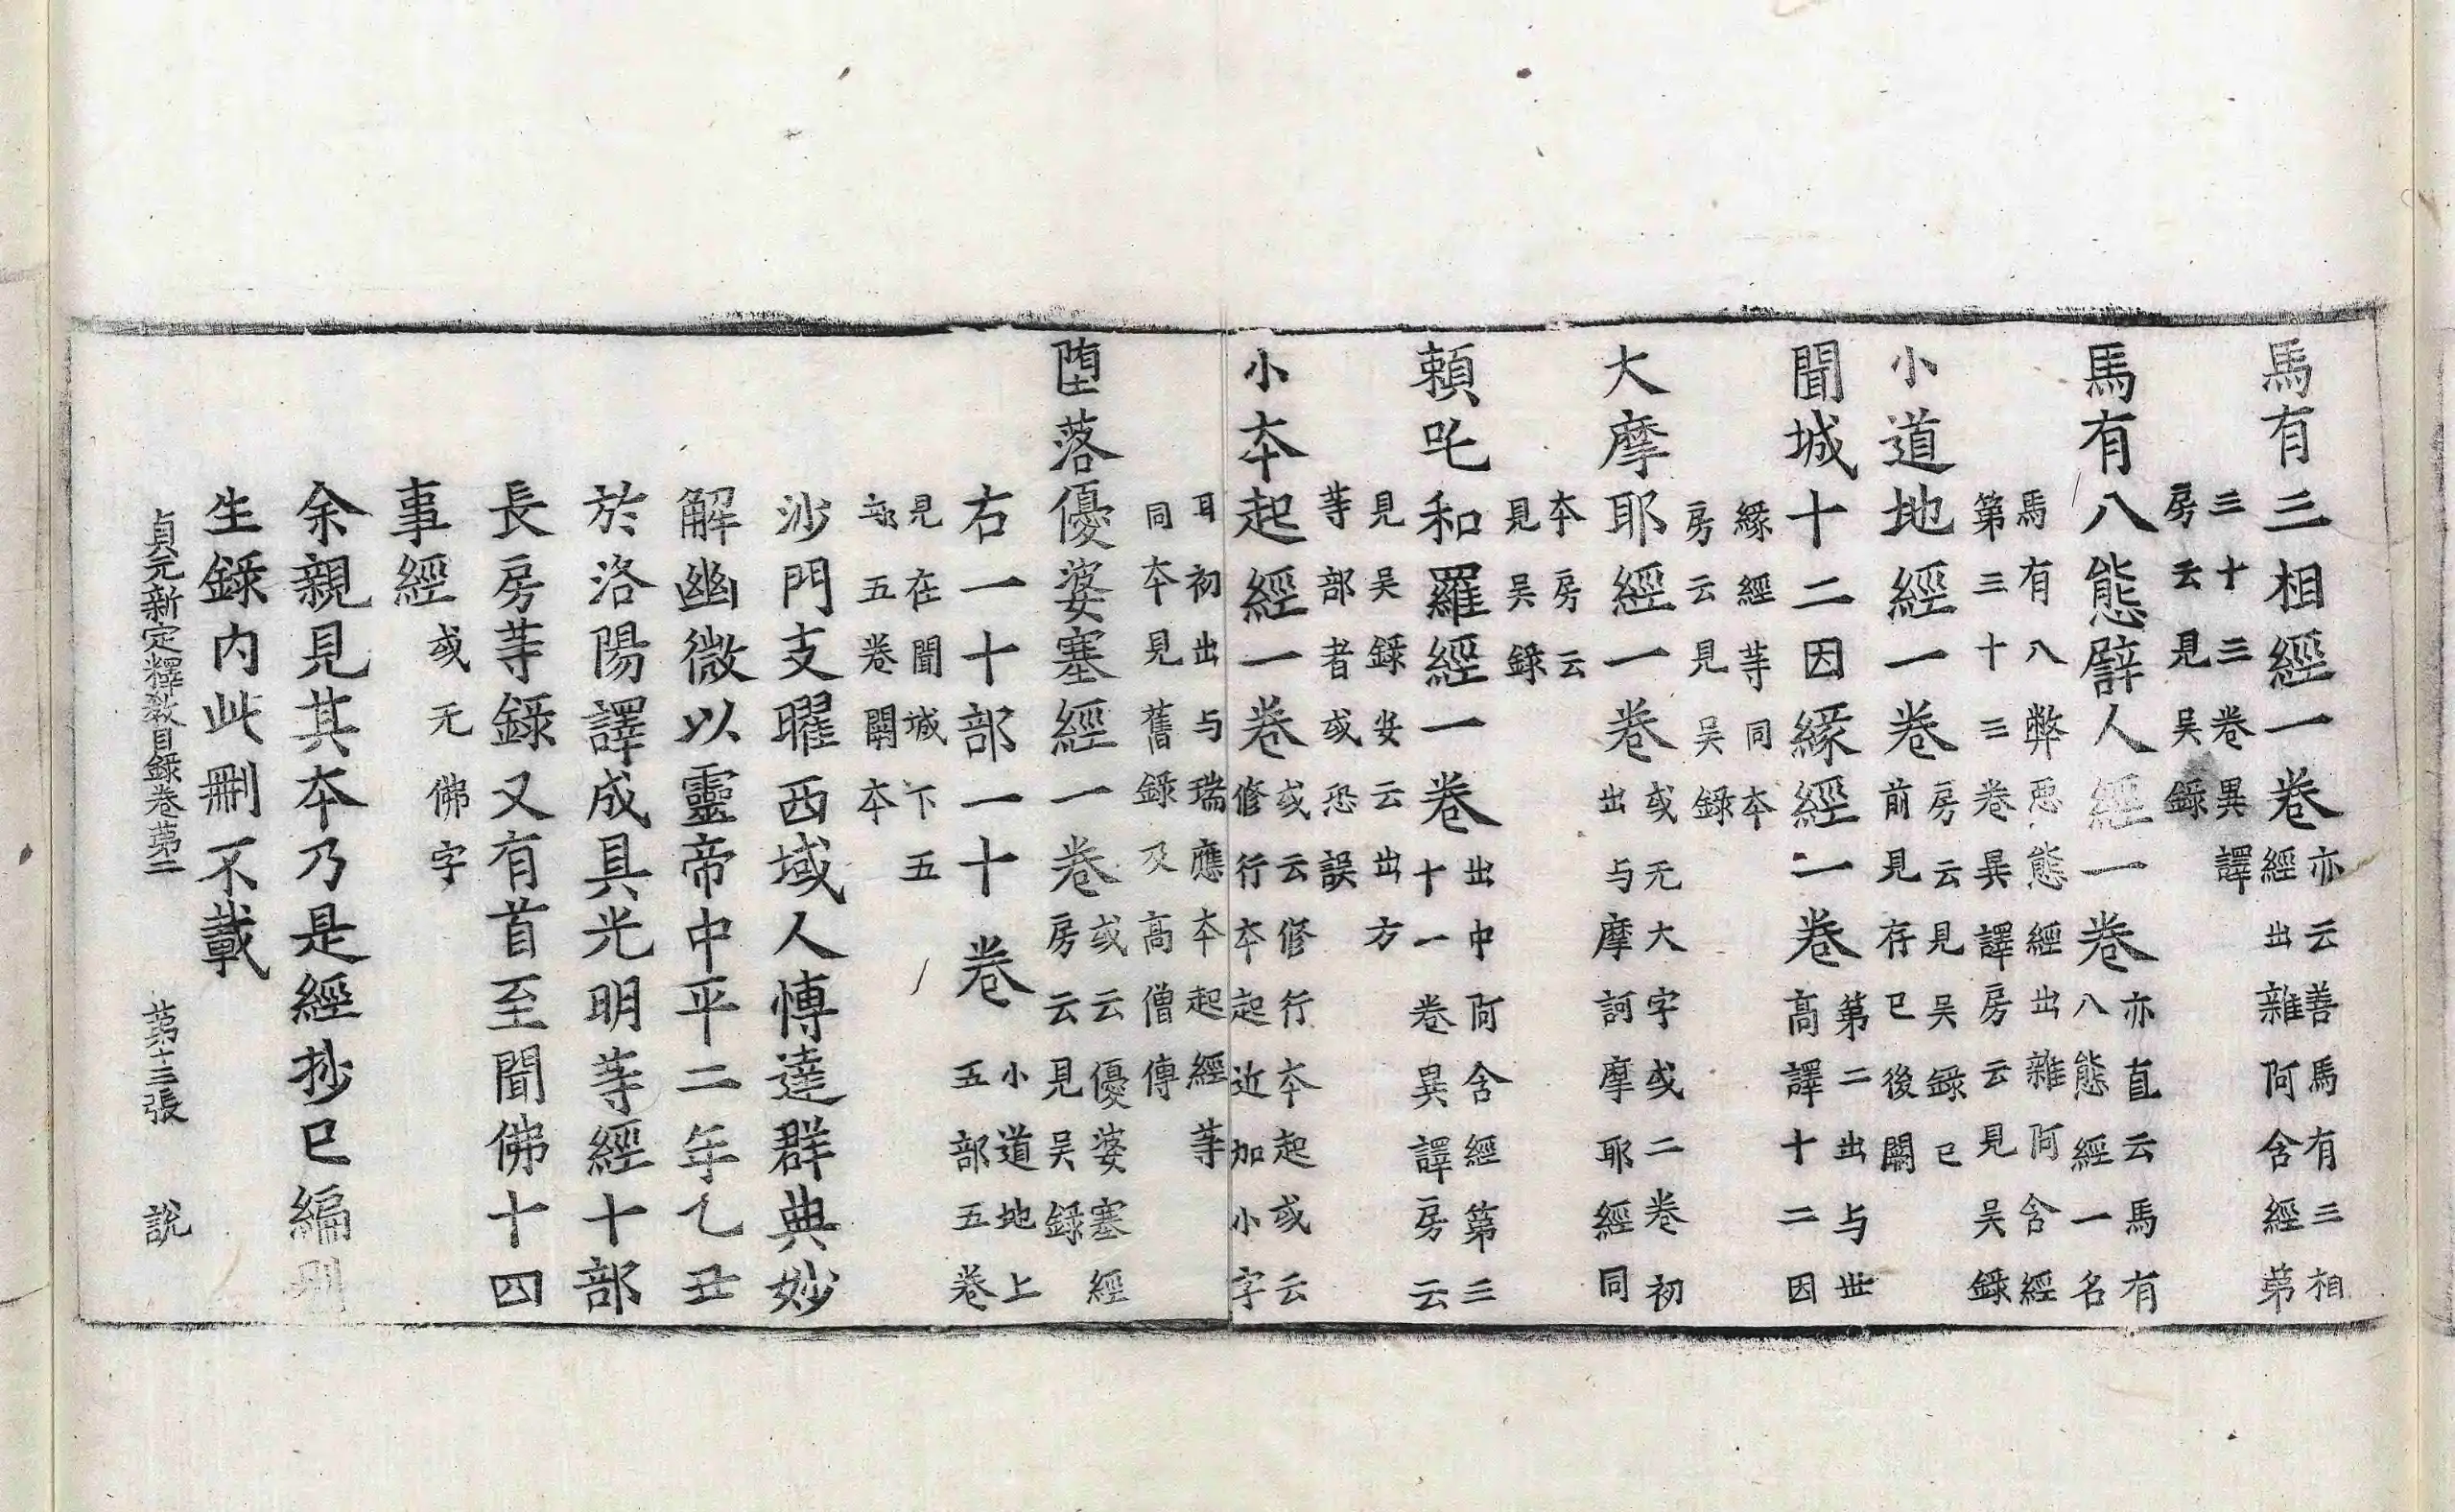 馬有三相經一卷亦云善馬有三相經出雜阿含經第
三十三卷異譯房云見吳錄
馬有八態譬人經一卷亦直云馬有八態經一名
馬有八弊惡態經出雜阿含經第三十三卷異譯房云見吳錄
小道地經一卷房云見吳錄已前見存已後闕
聞城十二因緣經一卷第二出与世高譯十二因
緣經等同本房云見吳錄
大摩耶經一卷或无大字或二卷初出与摩訶摩耶經同
本房云見吳錄
頼吒和羅經一卷出中阿含經第三十一卷異譯房云
見吳錄安云出方等部者或恐誤
小本起經一卷或云修行本起或云修行本起近加小字
耳初出与瑞應本起經等同本見舊錄及高僧傳
堕落優婆塞經一卷或云優婆塞經房云見吳錄
右一十部一十卷小道地上五部五卷
見在聞城下五部五卷闕本
沙門支曜西域人愽達群典妙
解幽微以靈帝中平二年乙丑
於洛陽譯成具光明等經十部
長房等錄又有首至聞佛十四
事經或无佛字
余親見其本乃是經抄已編別
生錄内此刪不載
貞元新定釋教目錄卷第二 第十三張 說